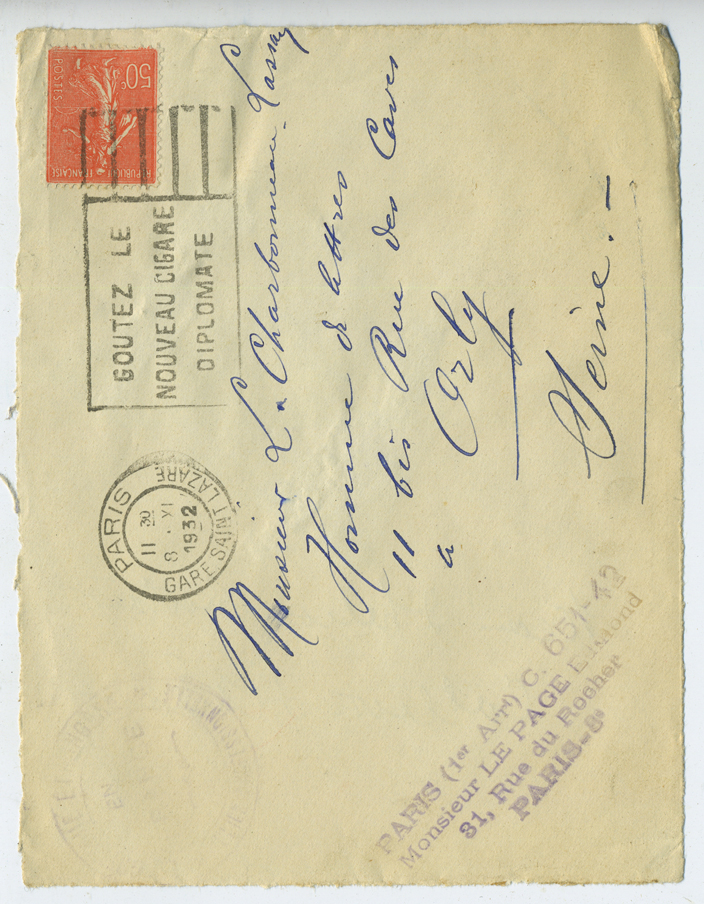 50c
POSTES
REPUBLIQUE FRANCAISE
GOUTEZ LE
NOUVEAU CIGARE
DIPLOMATE
PARIS
11 30
8 . XI
1932
GARE SAINT LAZARE
Monsieur L. Charbonneau-Lassay
Homme de lettres
11 bis Rue des Caves
a Orly
Seine.-
PARIS (1er Arrt) C. 651-42
Monsieur LE PAGE Edmond
31, Rue du Rocher
PARIS-8e